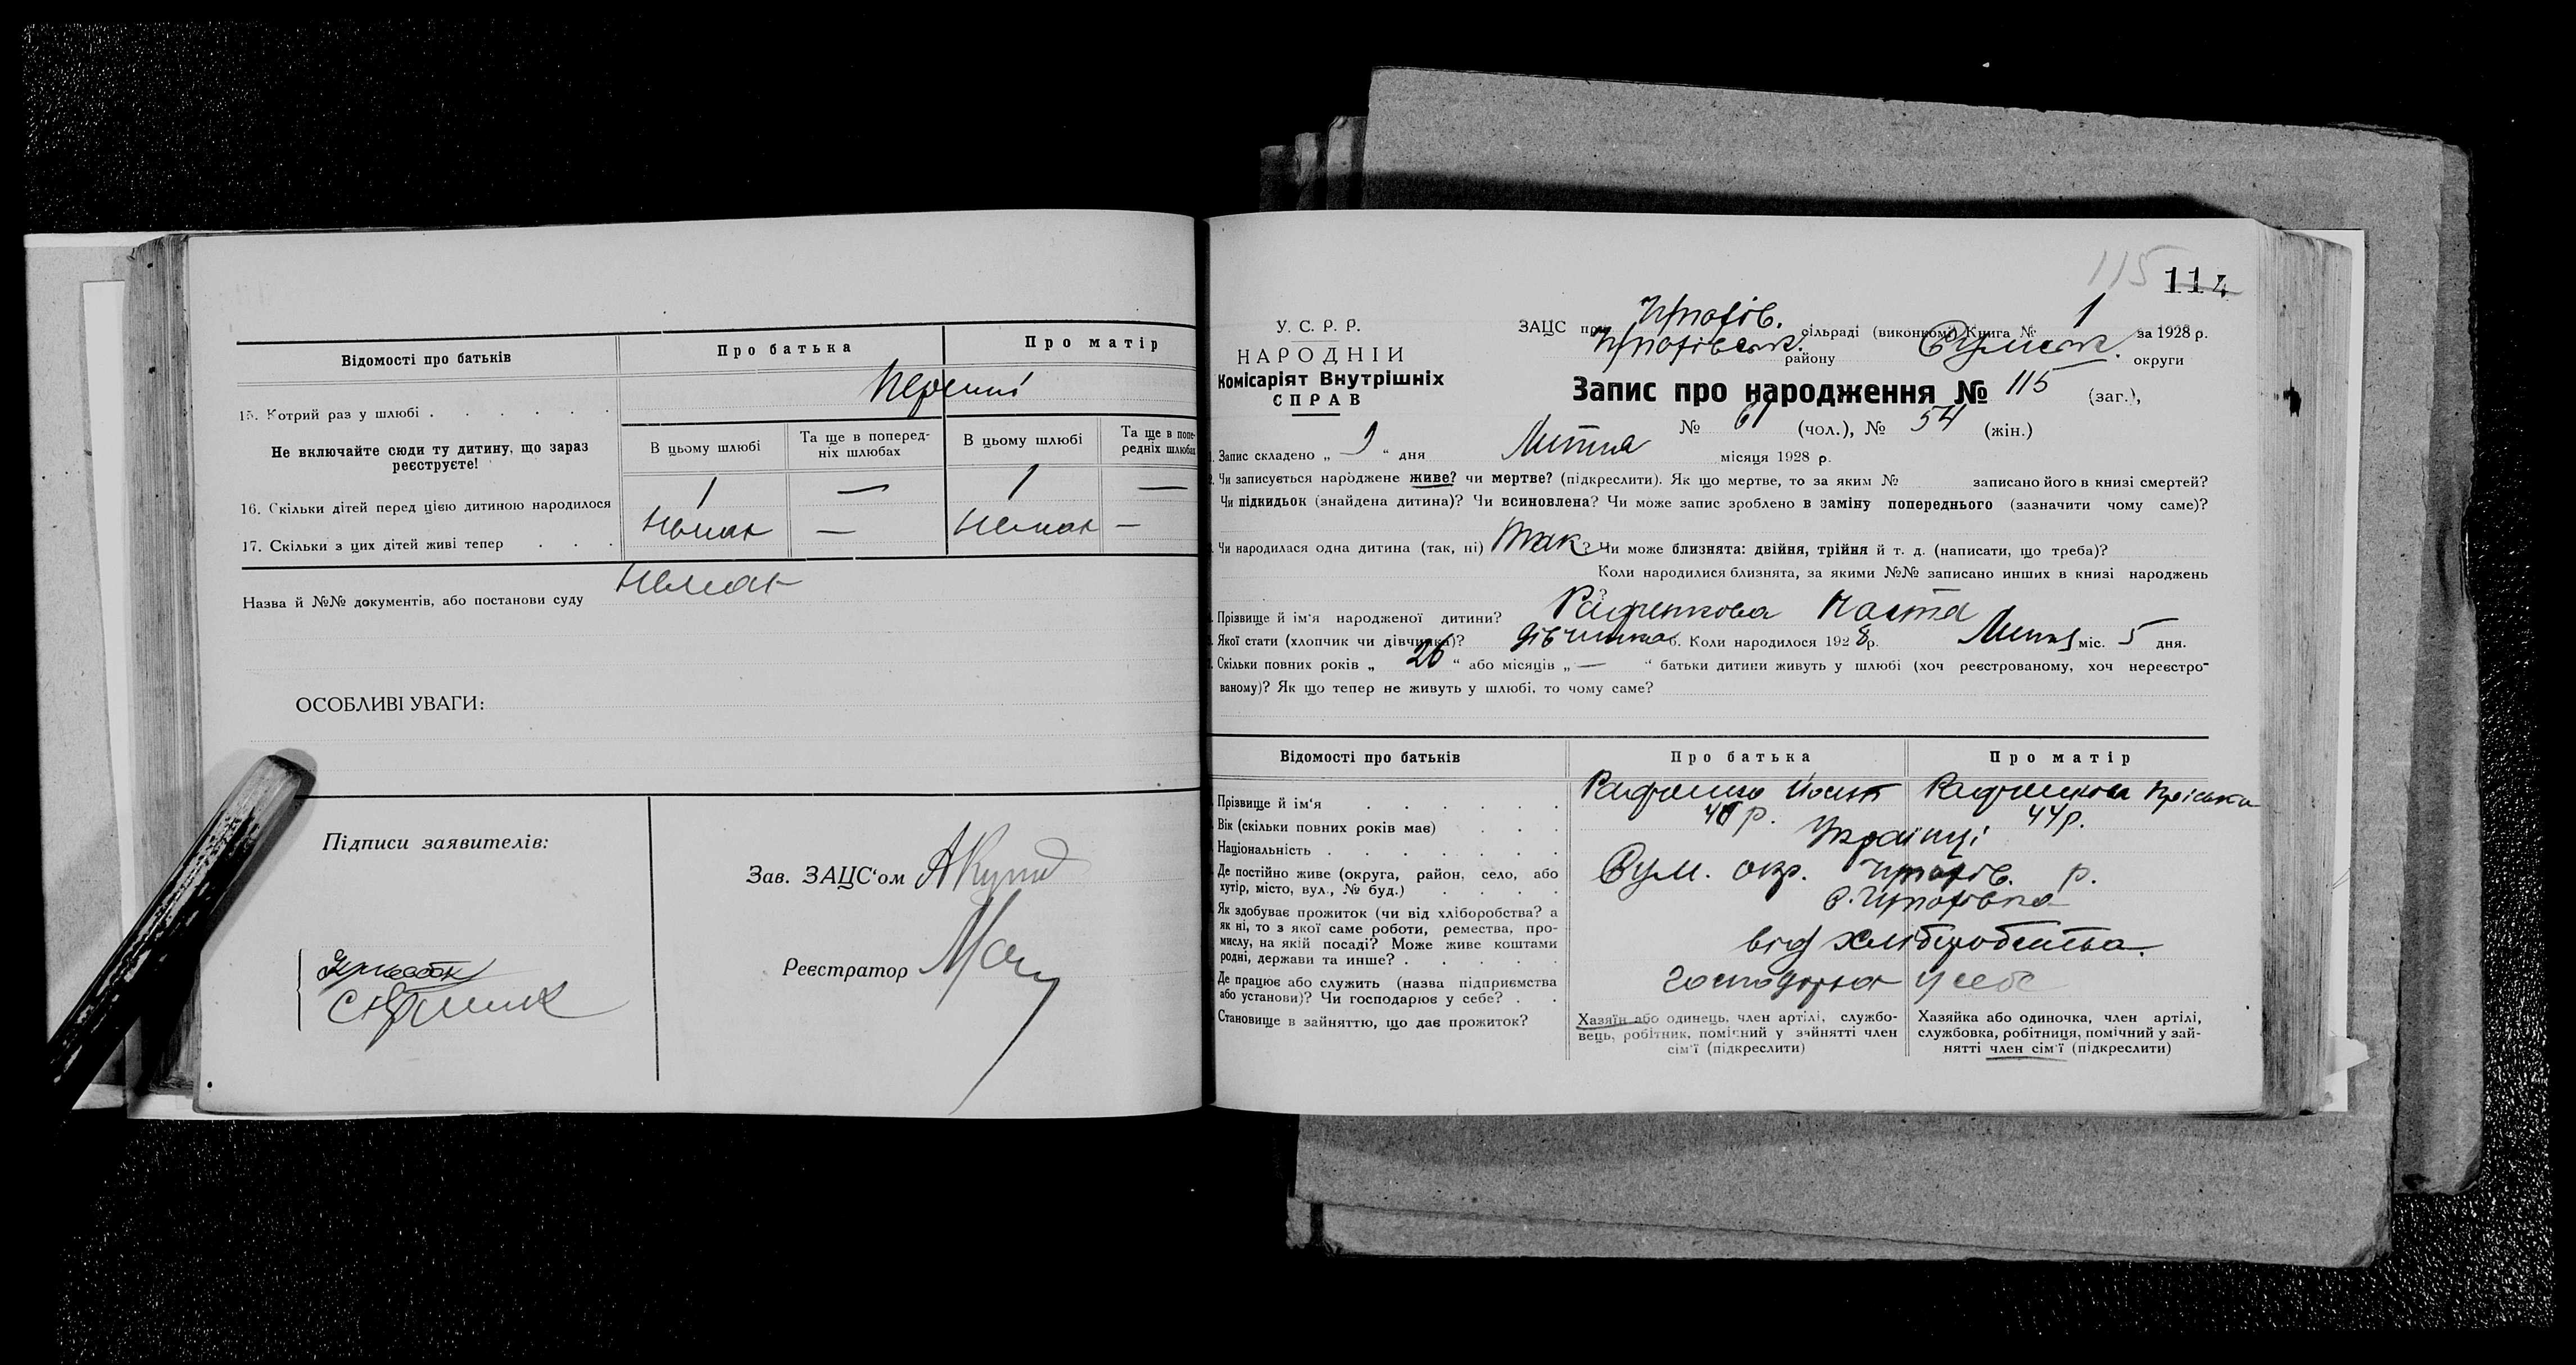 Відомості про батьків
Про батька
Про матір
15. Котрий раз у шлюбі
Перший
Не включайте сюди ту дитину, що зараз реєструєте!
В цьому шлюбі
Та ще в попередніх шлюбах
В цьому шлюбі
Та ще в попередніх шлюбах
16. Скільки дітей перед цією дитиною народилося
1 — 1 —
17. Скільки з цих дітей живі тепер
Немає — Немає —
Назва й №№ документів, або постанови суду Немає
ОСОБЛИВІ УВАГИ:
Підписи заявителів:
Зав. ЗАЦС‘ом
Реєстратор
115 114
У. С. Р. Р.
НАРОДНІЙ
Комісаріят Внутрішніх
СПРАВ
ЗАЦС при сільраді (виконкомі) Книга № 1 за 1928 р.
району Сумськ. округи
Запис про народження № 115 (заг.),
№ 61 (чол.), № 54 (жін.)
1. Запис складено „ 9 “ дня Липня місяця 1928 р.
2. Чи записується народжене живе? чи мертве? (підкреслити). Як що мертве, то за яким № записано його в книзі смертей?
Чи підкидьок (знайдена дитина)? Чи всиновлена? Чи може запис зроблено в заміну попереднього (зазначити чому саме)?
Чи народилася одна дитина (так, ні) Так ? Чи може близнята: двійня, трійня й т. д. (написати, що треба)?
Коли народилися близнята, за якими №№ записано инших в книзі народжень?
Прізвище й ім‘я народженої дитини? Настя
Якої стати (хлопчик чи дівчинка)? дівчинка 6. Коли народилося 1928 р. Липня міс. 5 дня.
Скільки повних років „ 26 “ або місяців „ — “ батьки дитини живуть у шлюбі (хоч реєстрованому, хоч нереєстро-
ваному)? Як що тепер не живуть у шлюбі, то чому саме?
Відомості про батьків
Про батька
Про матір
Прізвище й ім‘я
Вік (скільки повних років має)
р. 44 р.
Національність
Українці
Де постійно живе (округа, район, село, або
хутір, місто, вул., № буд.)
Сум. окр. р.
Як здобуває прожиток (чи від хліборобства? а
як ні, то з якої саме роботи, ремества, про-
мислу, на якій посаді? Може живе коштами
родні, держави та инше?
від хліборобства
Де працює або служить (назва підприємства
або установи)? Чи господарює у себе?
господарює у себе
Становище в зайняттю, що дає прожиток?
Хазяїн або одинець, член артілі, службо-
вець, робітник, помічний у зайнятті член
сім‘ї (підкреслити)
Хазяйка або одиночка, член артілі,
службовка, робітниця, помічний у зай-
нятті член сім‘ї (підкреслити)